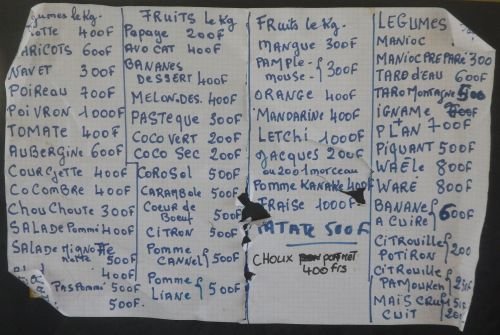 Légumes le Kg.
400F
HARICOTS 600F
NAVET 300F
POIREAU 700F
POIVRON 1000F
TOMATE 400F
AUBERGINE 600F
COURGETTE 400F
COCOMBRE 400F
CHOUCHOUTE 300F
SALADE POMMÉ 400F
SALADE MIGNO
NETTE 500F
400F
PAS POMMÉ 500F
500F.
FRUITS le Kg
PAPAYE 200F
AVOCAT 400F
BANANES
DESSERT 400F
MELON.DES. 400F
PASTÈQUE 300F
COCO VERT 200F
COCO SEC 200F
COROSOL 500F
CARAMBOLE 500F
COEUR DE
BOEUF 500F
CITRON 500F
POMME
CANNEL 500F
POMME
LIANE 500F
FRUITS le Kg.
MANGUE 300F
PAMPLE-
MOUSE- 300F
ORANGE 400F
MANDARINE 400F
LETCHI 1000F
JACQUES 200F
ou 200 1 morceau
POMME KANAKE 400F
FRAISE 1000F
TATAR 500F
CHOUX POMMET
400 frs
LEGUMES
MANIOC
MANIOC PREPARÉ 300
TARO D'EAU 600F
TARO MONTAGNE 500
IGNAME
PLAN 700F
PIQUANT 500F
WAËLE 800F
WARÉ 800F
BANANE
A CUIRE 600F
CITROUILLE
POTIRON 200
CITROUILLE
PAMOUKEN
MAÏS CRU
CUIT